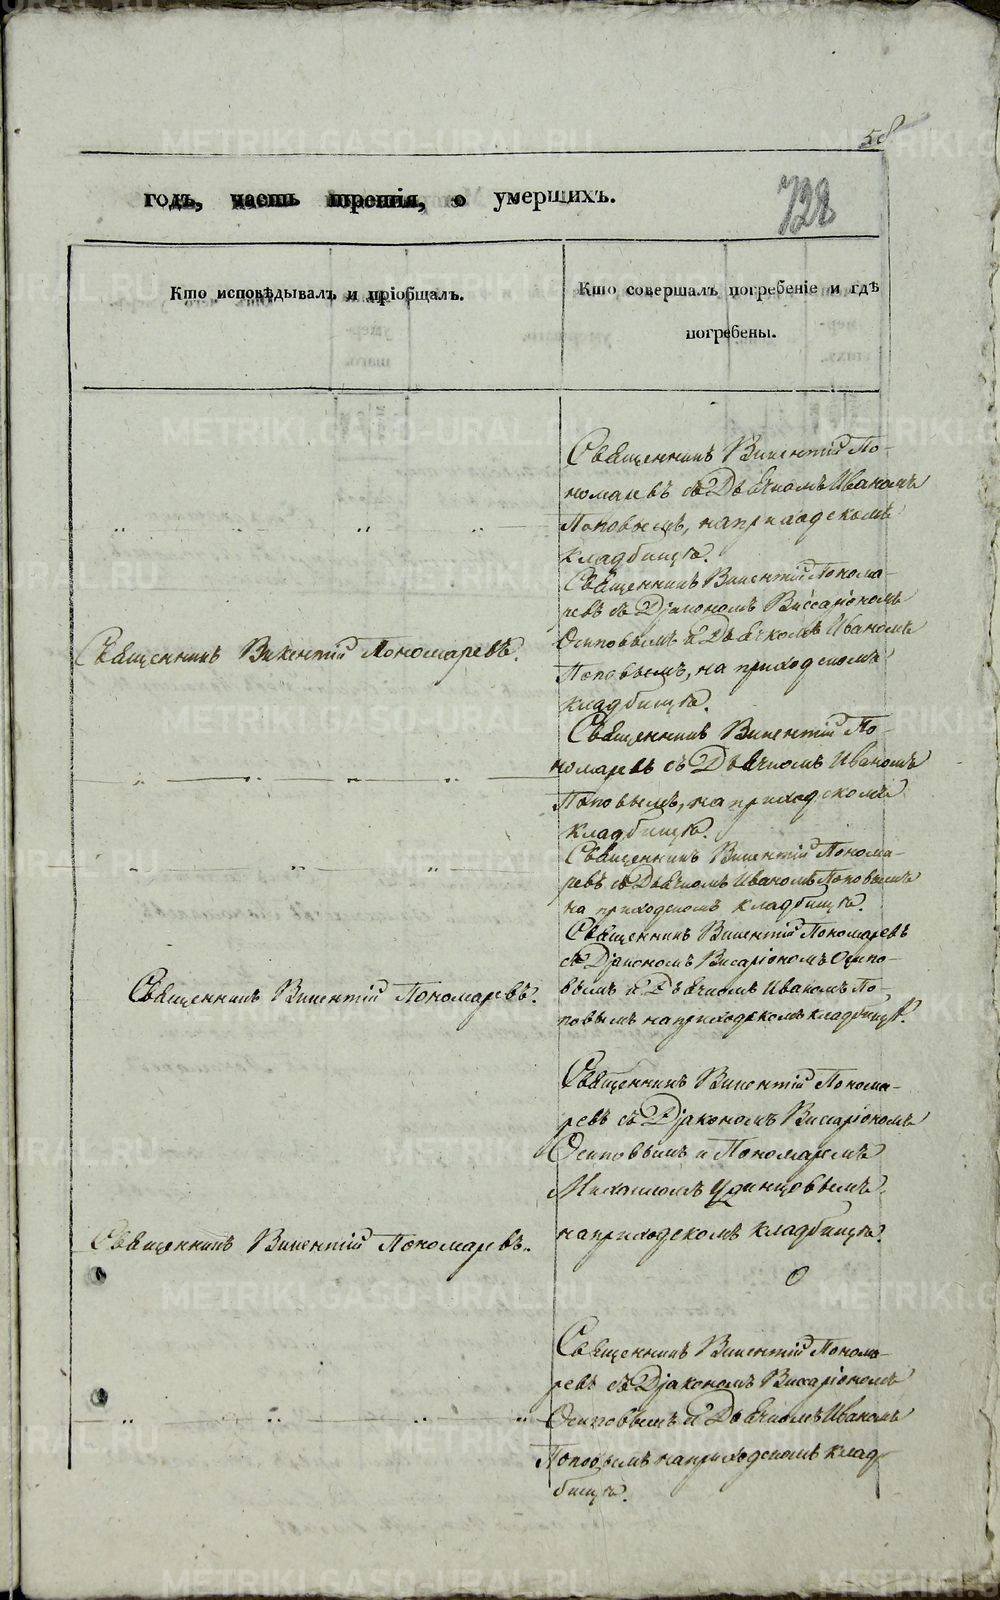 58
728
годъ, часть третія, о умершихъ.
Кто исповѣдывалъ и пріобщалъ.
Кто совершалъ погребеніе и гдѣ
погребены.
Священникъ Викентій По-
номаревъ съ Дьячкомъ Иваномъ
Поповымъ, на приходскомъ
кладбищѣ.
Священникъ Викентій Понома-
ревъ съ Діакономъ Виссаріономъ
Осиповымъ и Дьячкомъ Иваномъ
Священникъ Викентій Пономаревъ.
Поповымъ, на приходскомъ
кладбищѣ.
Священникъ Викентій По-
номаревъ съ Дьячкомъ Иваномъ
Поповымъ, на приходскомъ
кладбищѣ.
Священникъ Викентій Понома-
ревъ съ Дьячкомъ Иваномъ Поповымъ
на приходскомъ кладбищѣ.
Священникъ Викентій Пономаревъ
съ Діакономъ Висаріономъ Осипо-
Священникъ Викентій Пономаревъ.
вымъ и Дьячкомъ Иваномъ По-
повымъ на приходскомъ кладбищѣ.
Священникъ Викентій Понома-
ревъ съ Діакономъ Висаріономъ
Осиповымъ и Пономаремъ
Михаиломъ Удинцовымъ,
на приходскомъ кладбищѣ.
Священникъ Викентій Пономаревъ.
Священникъ Викентій Понома-
ревъ съ Діакономъ Висаріономъ
Осиповымъ и Дьячкомъ Иваномъ
Поповымъ на приходскомъ клад-
бищѣ.
METRIKI.GASO-URAL.RU